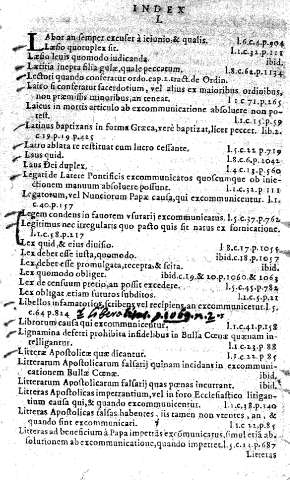 INDEX
L
LAbor an semper excuset à ieiunio, & qualis. l.6.c.4.p.904
Læsio quotuplex sit. l.1.c.32.p.111
Læsio leuis quomodo iudicanda. ibid.
Lætitia inepta filia gulæ, quale peccatum. l.8.c.64.p.1134
Lectori quando conferatur ordo. cap.1. tract. de Ordin.
Lator si conferatur sacerdotium, vel alius ex maioribus ordinibus,
non præmissis minoribus, an teneat. l.1 c.71.p.265
Laicus in mortis articulo ab excommunicatione absoluere non po-
test. l.1.c.15.p.59
Latinus baptizans in forma Græca, verè baptizat, licet peccet. lib.2.
c.19.p.425
Latro ablata te restituat cum lucro cessante. l.5.c.22.p.719
Laus quid. l.8.c.6.p.1042
Laus Dei duplex. l.4.c.13.p.560
Legati de Latere Pontificis excommunicatos quoscumque ob inie-
ctionem manuum absoluere possunt. l.1.c.32.p.111
Legatorum, vel Nunciorum Papæ causa, qui excommunicentur. l.1.
c.40.p.157
Legem condens in fauorem vsurarij excommunicatus. l.5.c.37.p.762
Legitimus nec irregularis quo pacto quis sit natus ex fornicatione.
l.1.c.58.p.217
Lex quid, & eius diuisio. l 8.c.17.p.1055
Lex debet esse iusta, quomodo. ibid.c.18.p.1057
Lex debet esse promulgata, recepta, & scita. ibid.
Lex quomodo obliget. ibid.c.19.&.20.p.1060.& 1063
Lex de censum precio, an possit excedere. l.5.c.45.p.782
Lex obligat etiam futuros subditos. l.1.c.5.p.21
Libellos infamatorios scribens, vel recipiens, an excommunicetur. l.5.
c.64 p.814
Librorum causa qui excommunicentur. l.1.c.41.p.158
Lignamina deferri prohibita infidelibus in Bulla Cœnæ quænam in-
telligantur. l.1 c.23.p 88
Litteræ Apostolicæ quæ dicantur. l.1.c.22.p.85
Litterarum Apostolicarum falsarij quinam incidant in excommuni-
cationem Bullæ Cœnæ. ibid.
Litterarum Apostolicarum falsarij quas pœnas incurrant. ibid.
Litteras Apostolicas impetrantium, vel in foro Ecclesiastico litigan-
tium causa qui, & quando excommunicentur. l.1.c.38.p.140
Litteras Apostolicas falsas habentes, iis tamen non vtentes, an, &
quando sint excommunicati. l.1.c.22.p.85
Litteras ad beneficium à Papa impetrans excommunicatus, simul etiā ab-
solutionem ab excommunicatione, quando impetret. l.5.c.13.p.687
Litteras